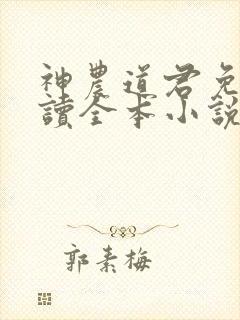 神農道君免
讀全本小說
郭素梅